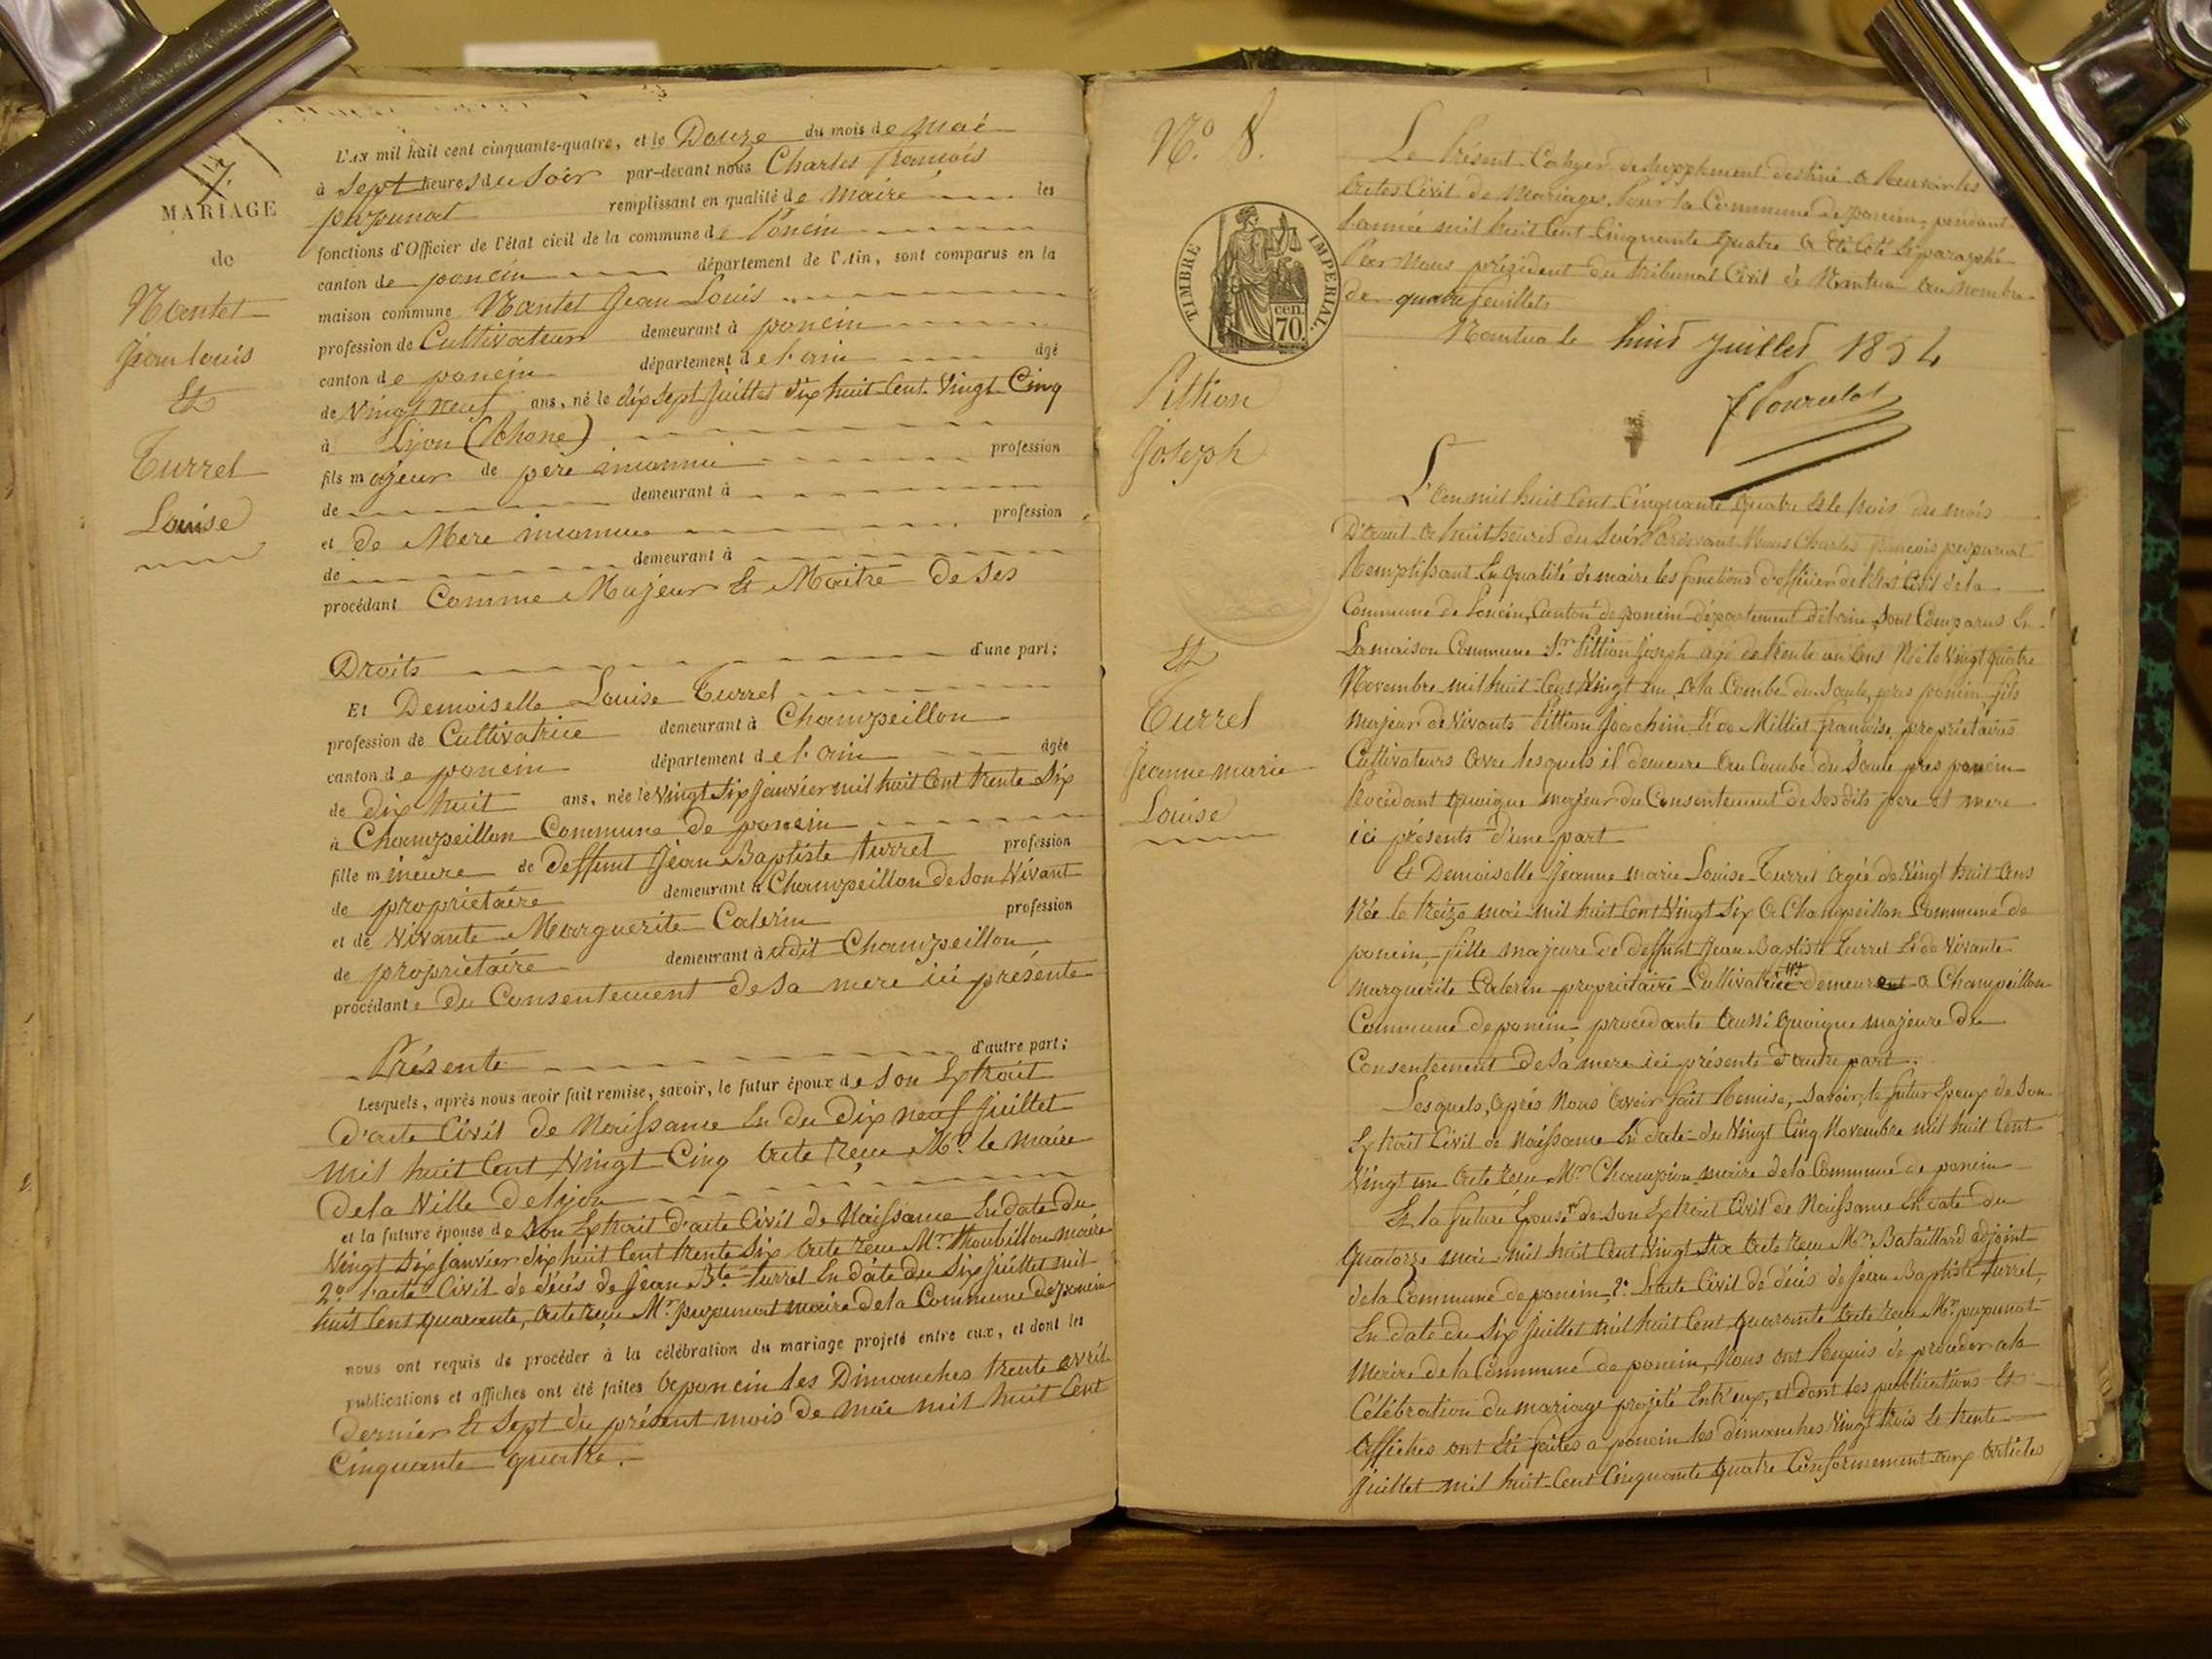 7.
MARIAGE
de
Nantet
Jean louis
Et
Turrel
Louise
L'AN mil huit cent cinquante-quatre, et le Douze du mois de mai
à Sept heures du Soir par-devant nous Charles françois
pupunat remplissant en qualité de maire les
fonctions d'Officier de l'état civil de la commune de Poncin
canton de poncin département de l'Ain, sont comparus en la
maison commune Nantet Jean Louis
profession de Cultivateur demeurant à poncin
canton de poncin département de l'ain âgé
de Vingt neuf ans, né le dix sept Juillet dix huit Cent Vingt Cinq
à Lyon (Rhone)
fils majeur de père inconnu profession
de demeurant à
et de Mere inconnue profession
de demeurant à
procédant Comme Majeur Et Maitre De Ses
Droits d'une part;
Et Demoiselle Louise Turrel
profession de Cultivatrice demeurant à Champeillon
canton de poncin département de l'ain âgée
de dix huit ans, née le Vingt Six Janvier mil huit Cent trente Six
à Champeillon Commune de poncin
fille mineure de deffunt Jean Baptiste turrel profession
de propriétaire demeurant à Champeillon de Son Vivant
et de Vivante Marguerite Calerin profession
de propriétaire demeurant à udit Champeillon
procédante du Consentement de Sa mere ici présente
Présente d'autre part;
Lesquels, après nous avoir fait remise, savoir, le futur époux de Son Extrait
d'acte Civil de Naissance En du Dix neuf Juillet
mil huit Cent Vingt Cinq Acte reçu Mr. le maire
De la Ville de lyon
et la future épouse de Son Extrait d'acte Civil de Naissance En date du
Vingt Six Janvier dix huit Cent trente Six Acte reçu Mr. maire
2.º l'acte Civil de décès de Jean Bte. Turrel En date du Six Juillet mil
huit Cent quarante, Acte reçu Mr. pupunat maire de la Commune de poncin
nous ont requis de procéder à la célébration du mariage projeté entre eux, et dont les
publications et affiches ont été faites à poncin les Dimanches trente avril
dernier Et Sept du présent mois de mai mil huit Cent
Cinquante quatre.
N.º 8.
Le Présent Cahyer de Supplément destiné à Recevoir les
Actes Civil de Mariages, Pour la Commune de poncin, pendant
l'année mil huit Cent Cinquante quatre a été Coté Et paraphé
Par Nous président du tribunal Civil de Nantua au nombre
de quatre feuillets
Nantua le huit Juillet 1854
TIMBRE IMPERIAL.
cen.
70.
Pittion
Joseph
Et
Turrel
Jeanne marie
Louise
L'an mil huit Cent Cinquante quatre Et le trois du mois
D'aout à huit heures du Soir Pardevant Nous Charles françois pupunat
Remplissant En qualité de maire les fonctions d'officier de l'Etat Civil de la
Commune de Poncin, Canton de poncin département de l'ain, Sont Comparus En
La maison Commune Sr. Pittion Joseph agé de trente un ans Né le Vingt quatre
Novembre mil huit Cent Vingt un, à la Combe du Saule, près poncin, fils
majeur de Vivants Pittion Joachim Et de Milliet françoise, propriétaires
Cultivateurs avec lesquels il demeure au Combe du Saule près poncin
Procédant quoique majeur du Consentement de Ses dits père et mere
ici présents d'une part
Et Demoiselle Jeanne marie Louise Turrel agée de Vingt huit ans
Née le treize mai mil huit Cent Vingt Six à Champeillon Commune de
poncin, fille majeure de deffunt Jean Baptiste Turrel Et de Vivante
Marguerite Calerin propriétaire Cultivatrice demeurant à Champeillon
Commune de poncin, procédante aussi quoique majeure du
Consentement de Sa mere ici présente d'autre part.
Lesquels, après Nous avoir fait Remise, Savoir, le futur Epoux de Son
Extrait Civil de naissance En date du Vingt Cinq Novembre mil huit Cent
Vingt un Acte reçu Mr. Champion maire de la Commune de poncin
Et la future Epouse 1º de Son Extrait Civil de Naissance En date du
quatorze mai mil huit Cent Vingt Six Acte reçu Mr. Bataillard adjoint
de la Commune de poncin, 2º. L'acte Civil de décès de Jean Baptiste Turrel,
En date du Six Juillet mil huit Cent quarante Acte reçu Mr. pupunat
Maire de la Commune de poncin, Nous ont Requis de procéder à la
Célébration du mariage projeté Entr'eux, et dont les publications Et
affiches ont été faites a poncin les dimanches Vingt trois Et trente
Juillet mil huit Cent Cinquante quatre Conformément aux articles